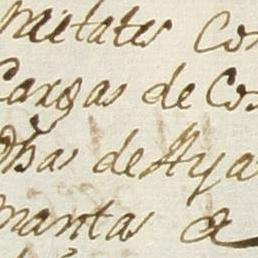 metates Con
Cargas de Co
Ohas de Aya
mantas a